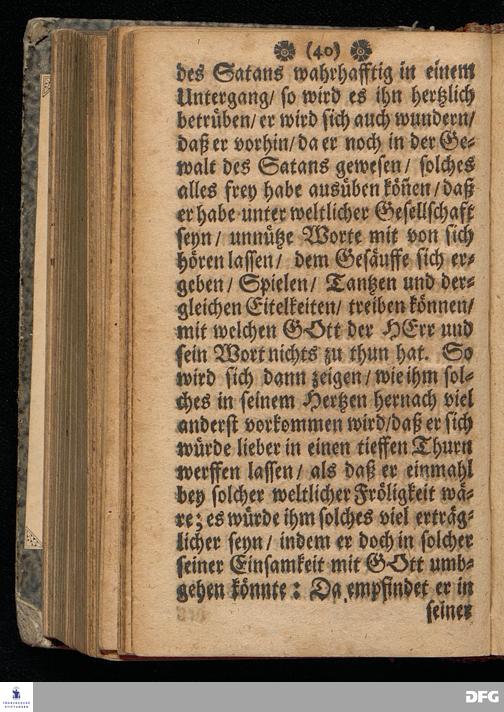 (40)
des Satans wahrhafftig in einem
Untergang/ so wird es ihn hertzlich
betrüben/ er wird sich auch wundern/
daß er vorhin/ da er noch in der Ge-
walt des Satans gewesen/ solches
alles frey habe ausüben köñen/ daß
er habe unter weltlicher Gesellschaft
seyn/ unnütze Worte mit von sich
hören lassen/ dem Gesäuffe sich er-
geben/ Spielen/ Tantzen und der-
gleichen Eitelkeiten/ treiben können/
mit welchen GOtt der HErr und
sein Wort nichts zu thun hat. So
wird sich dann zeigen/ wie ihm sol-
ches in seinem Hertzen hernach viel
anderst vorkommen wird/ daß er sich
würde lieber in einen tieffen Thurn
werffen lassen/ als daß er einmahl
bey solcher weltlicher Fröligkeit wä-
re; es würde ihm solches viel erträg-
licher seyn/ indem er doch in solcher
seiner Einsamkeit mit GOtt umb-
gehen könnte: Da empfindet er in
seiner
FRANCKESCHE
STIFTUNGEN
DFG